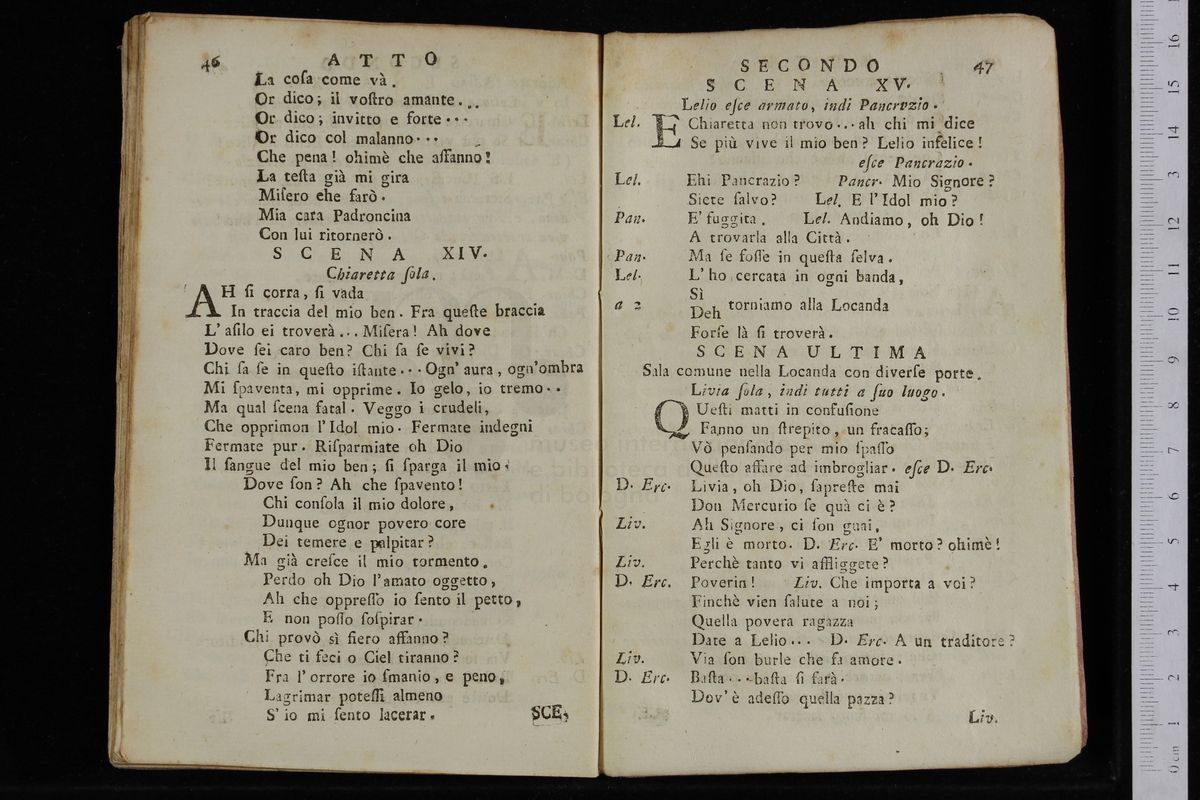 46 ATTO
La coſa come và.
Or dico; il voſtro amante...
Or dico; invitto e forte...
Or dico col malanno...
Che pena! ohimè che aſſanno!
La teſta già mi gira
Miſero ehe farò.
Mia cara Padroncina
Con lui ritornerò.
SCENA XIV.
Chiaretta ſola.
AH ſi corra, ſi vada
In traccia del mio ben. Fra queſte braccia
L'aſilo ei troverà... Miſera! Ah dove
Dove ſei caro ben? Chi ſa ſe vivi?
Chi ſa ſe in queſto iſtante... Ogn'aura, ogn'ombra
Mi ſpaventa, mi opprime. Io gelo, io tremo..
Ma qual ſcena fatal. Veggo i crudeli,
Che opprimon l'Idol mio. Fermate indegni
Fermate pur. Riſparmiate oh Dio
Il ſangue del mio ben; ſi ſparga il mio.
Dove ſon? Ah che ſpavento!
Chi conſola il mio dolore,
Dunque ognor povero core
Dei temere e palpitar?
Ma già creſce il mio tormento.
Perdo oh Dio l'amato oggetto,
Ah che oppreſſo io ſento il petto,
E non poſſo ſoſpirar.
Chi provò sì fiero affanno?
Che ti feci o Ciel tiranno?
Fra l'orrore io ſmanio, e peno,
Lagrimar poteſſi almeno
S'io mi ſento lacerar.
SCE,
SECONDO 47
SCENA XV.
Lelio eſce armato, indi Pancrvzio.
Lel. E Chiaretta non trovo... ah chi mi dice
Se più vive il mio ben? Lelio infelice!
eſce Pancrazio.
Lel. Ehi Pancrazio? Pancr. Mio Signore?
Siete ſalvo? Lel. E l'Idol mio?
Pan. E' fuggita. Lel. Andiamo, oh Dio!
A trovarla alla Città.
Pan. Ma ſe foſſe in queſta ſelva.
Lel. L'ho cercata in ogni banda,
Sì
a 2 Deh torniamo alla Locanda
Forſe là ſi troverà.
SCENA ULTIMA
Sala comune nella Locanda con diverſe porte.
Livia ſola, indi tutti a ſuo luogo.
QUeſti matti in confuſione
Fanno un ſtrepito, un fracaſſo;
Vò penſando per mio ſpaſſo
Queſto affare ad imbrogliar. eſce D. Erc.
D. Erc. Livia, oh Dio, ſapreſte mai
Don Mercurio ſe quà ci è?
Liv. Ah Signore, ci ſon guai,
Egli è morto. D. Erc. E' morto? ohimè!
Liv. Perchè tanto vi affliggete?
D. Erc. Poverin! Liv. Che importa a voi?
Finchè vien ſalute a noi;
Quella povera ragazza
Date a Lelio... D. Erc. A un traditore?
Liv. Via ſon burle che fa amore.
D. Erc. Baſta... baſta ſi farà.
Dov'è adeſſo quella pazza?
Liv.